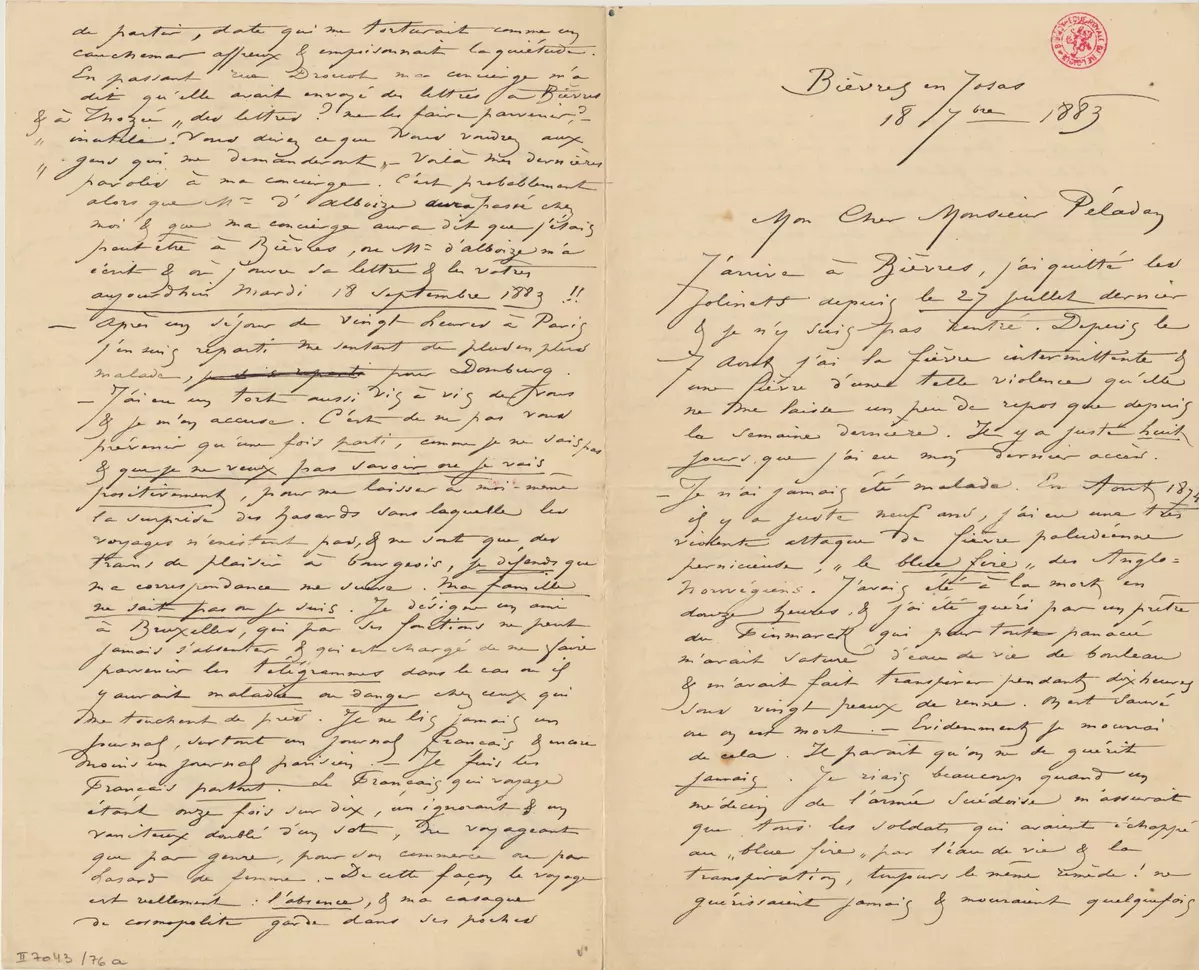 Bièvres en Josas
18 7bre 1883
Mon Cher Monsieur Péladan
J'arrive à Bièvres, j'ai quitté les
Jolinets depuis le 27 juillet dernier
& je n'y suis pas rentré. Depuis le
7 Aout j'ai la fièvre intermittente &
une fièvre d'une telle violence qu'elle
ne me laisse un peu de repos que depuis
la semaine dernière. Il y a juste huit
jours, que j'ai eu mon dernier accès.
– Je n'ai jamais été malade. En Aout 1874
il y a juste neuf ans, j'ai eu une très
violente attaque de fièvre paludéenne
pernicieuse, "le blue fire" des Anglo-
Norwégiens. J'avais été à la mort en
douze heures, & j'ai été guéri par un prêtre
du Finmarck qui pour toute panacée
m'avait saturé d'eau de vie de bouleau
& m'avait fait transpirer pendant dix heures
sous vingt peaux de renne. On est sauvé
ou on est mort. – Evidemment je mourrai
de cela. Il parait qu'on ne se guérit
jamais. Je riais beaucoup quand un
médecin de l'armée suédoise m'assurait
que tous les soldats qui avaient échappé
au "blue fire" par l'eau de vie & la
transpiration, toujours le même remède! ne
guérissaient jamais & mouraient quelquefois
de partir, date qui me torturait comme un
cauchemar affreux & empoisonnait la quiétude.
En passant rue Drouot ma concierge m'a
dit qu'elle avait envoyé des lettres à Bièvres
& à "des lettres? me les faire parvenir? –
" inutile! Vous direz ce que vous voudrez aux
" gens qui me demanderont" – Voilà mes dernières
paroles à ma concierge. C'est probablement
alors que Mr d'Alboize aura passé chez
moi & que ma concierge aura dit que j'étais
peut être à Bièvres, où Mr d'Alboize m'a
écrit & où j'ouvre sa lettre & les vôtres
aujourdhui Mardi 18 Septembre 1883 !!
– Après un séjour de vingt heures à Paris
j'en suis reparti me sentant de plus en plus
malade, pour Domburg.
– J'ai eu un tort aussi vis à vis de vous
& je m'en accuse. C'est de ne pas vous
prévenir qu'une fois parti, comme je ne sais pas
& que je ne veux pas savoir où je vais
positivement, pour me laisser à moi-même
la surprise des hasards sans laquelle les
voyages n'existent pas, & ne sont que des
trains de plaisir à bourgeois, je défends que
ma correspondance me suive. Ma famille
ne sait pas où je suis. Je désigne un ami
à Bruxelles, qui par ses fonctions ne peut
jamais s'absenter & qui est chargé de me faire
parvenir les télégrammes dans le cas où il
y aurait maladie ou danger chez ceux qui
me touchent de près. Je ne lis jamais un
journal, surtout un journal français & encore
moins un journal parisien. – Je fuis les
Français partout. Le Français qui voyage
étant onze fois sur dix, un ignorant & un
vaniteux doublé d'un sot, ne voyageant
que par genre, pour son commerce ou par
hasard de femme. – De cette façon le voyage
est réellement : l'absence, & ma casaque
de cosmopolite garde dans ses poches
II 7043 /76 a